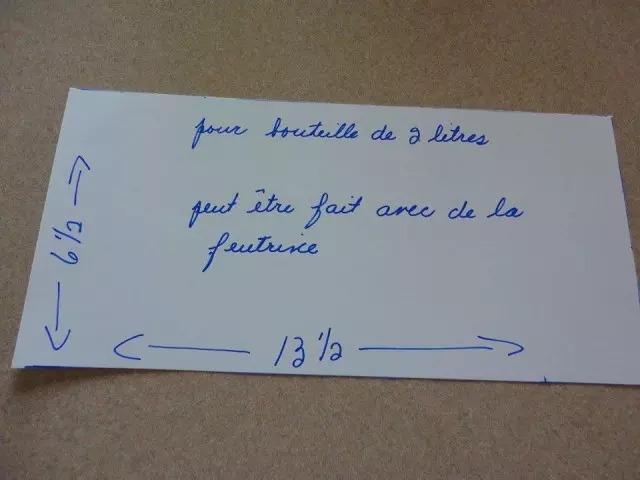 pour bouteille de 2 litres
peut être fait avec de la
feutrine
6 1/2
13 1/2